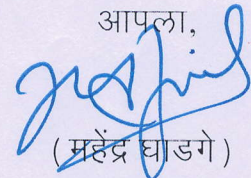 आपला,
( महेंद्र घाडगे )